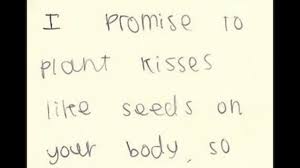 I PROMISE TO
plant kisses
like seeds on
your body, so